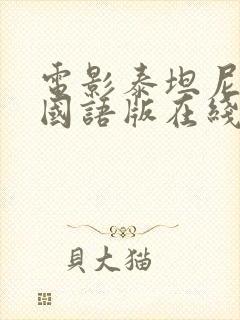 電影泰坦尼
國語版在綫
貝大猫